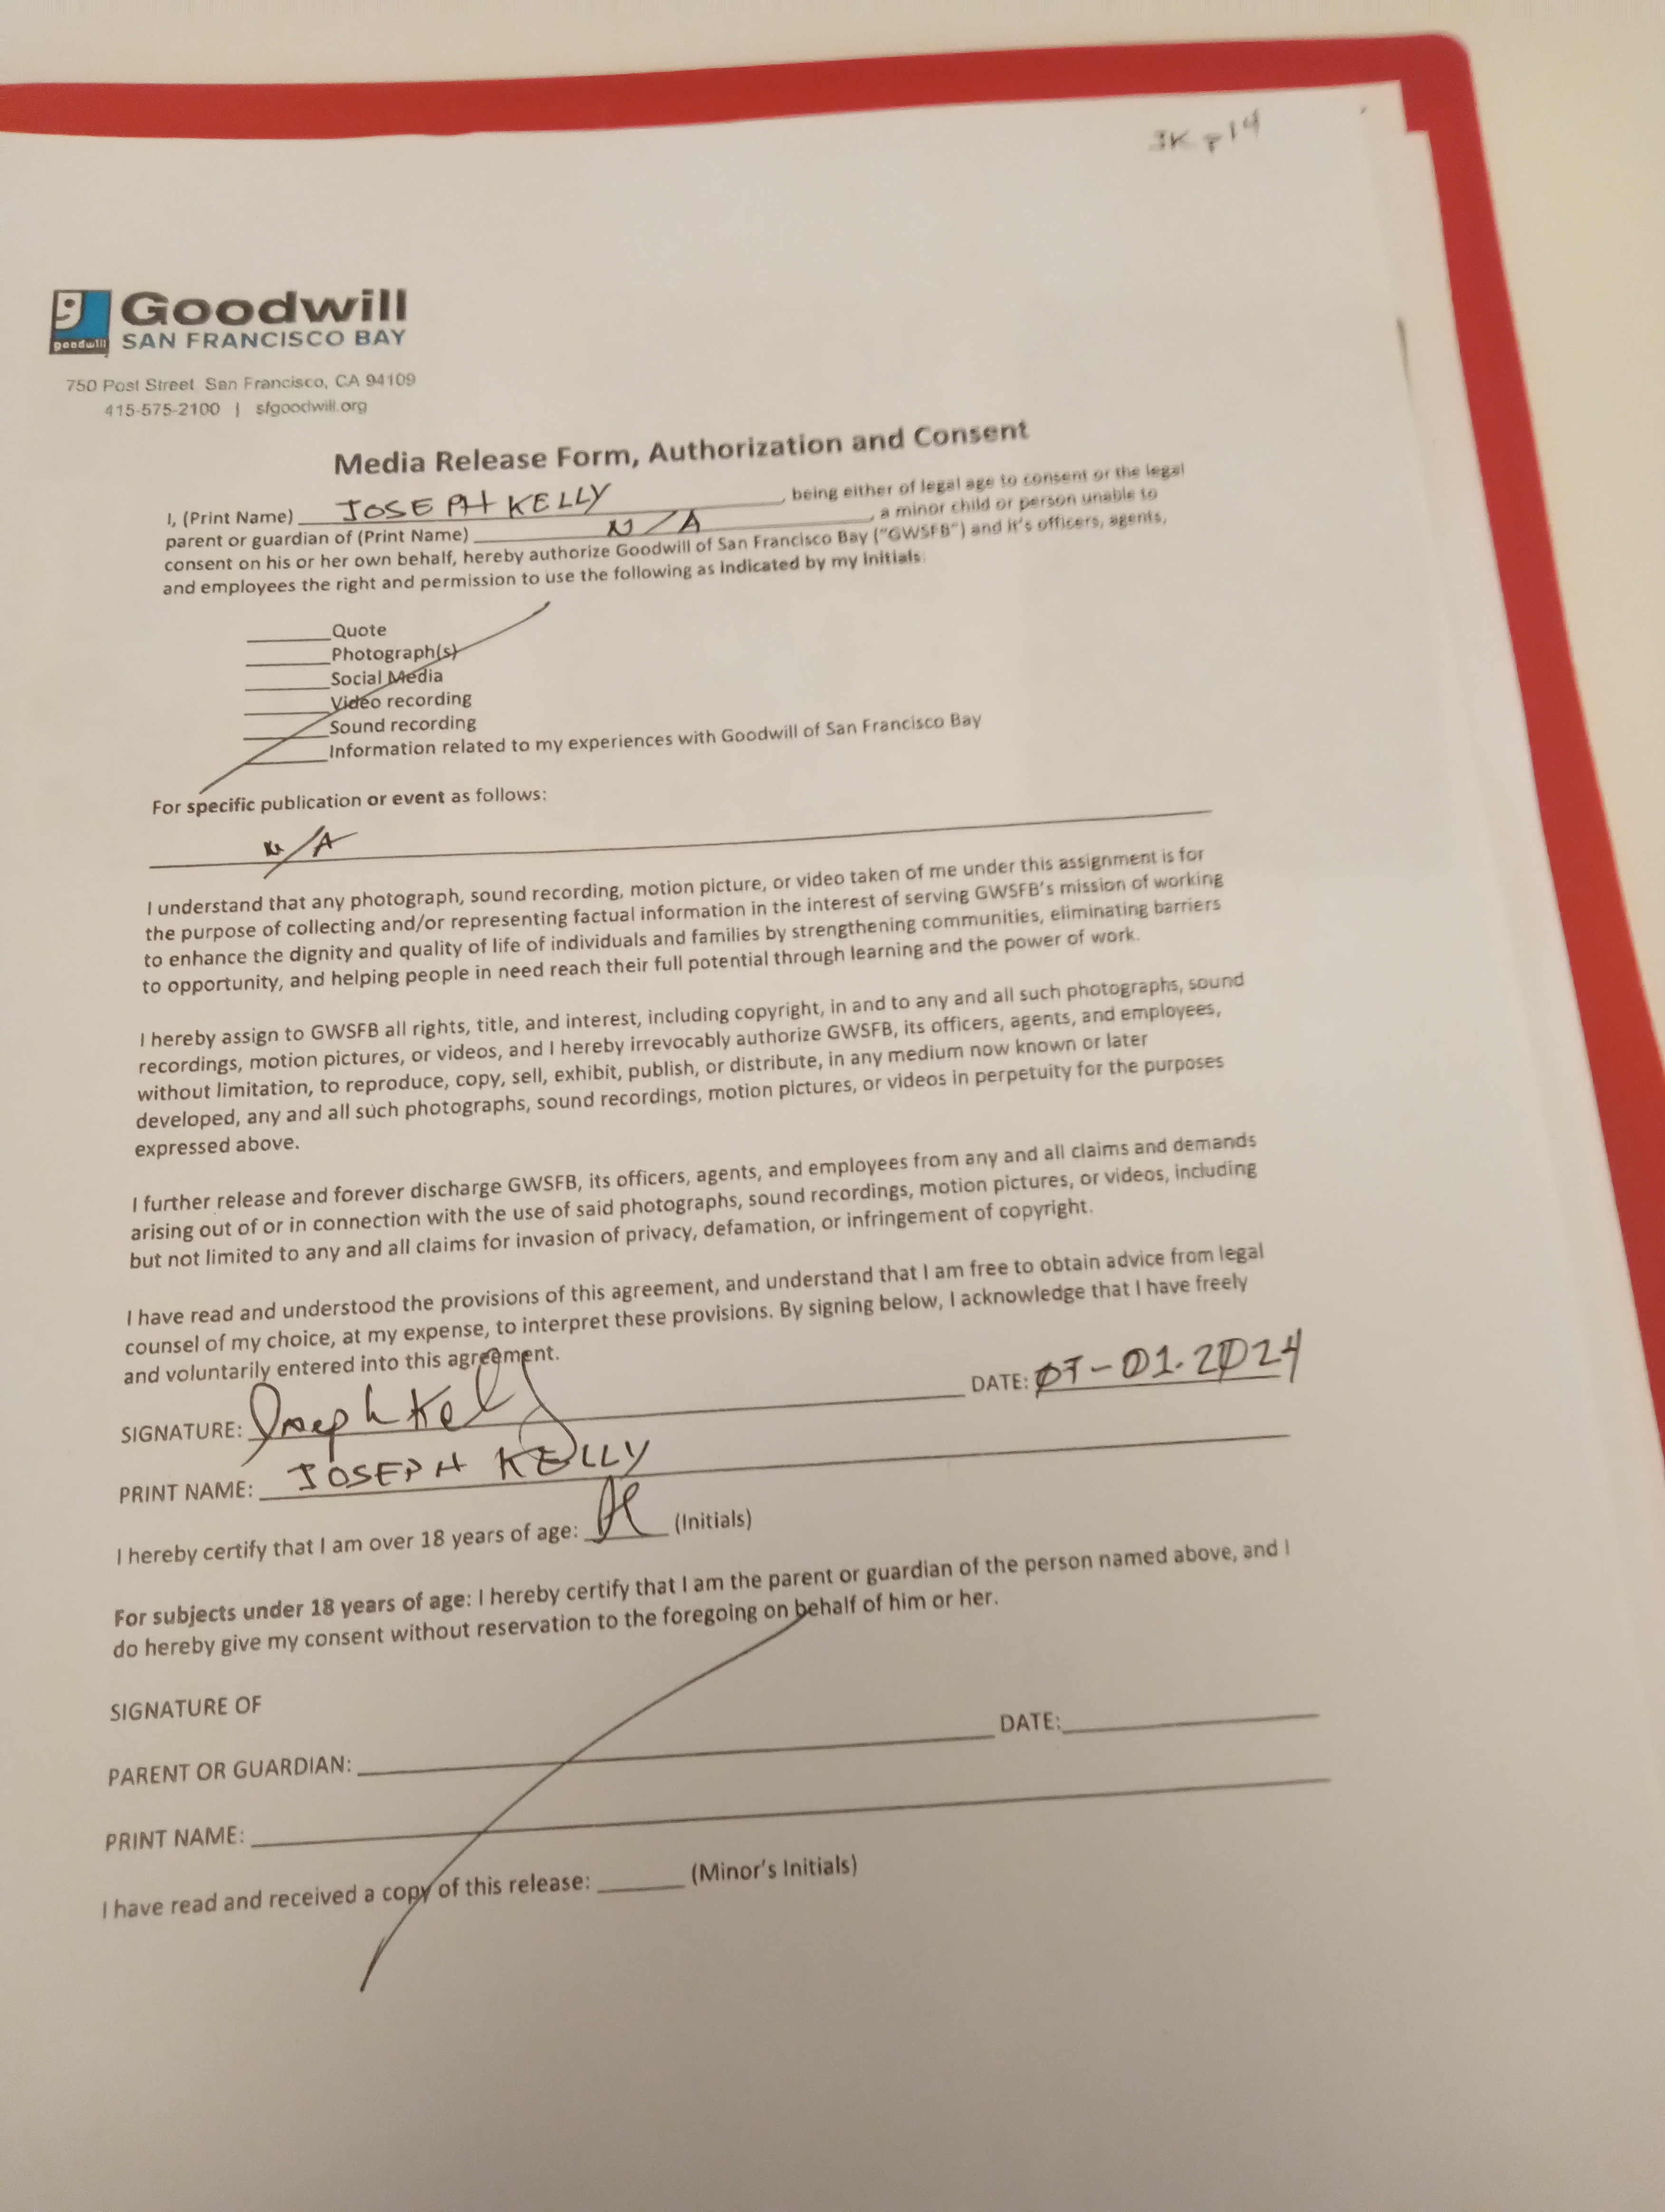 JK p14
g
goodwill
Goodwill
SAN FRANCISCO BAY
750 Post Street San Francisco, CA 94109
415-575-2100 | sfgoodwill.org
Media Release Form, Authorization and Consent
I, (Print Name) JOSEPH KELLY, being either of legal age to consent or the legal
parent or guardian of (Print Name) N/A, a minor child or person unable to
consent on his or her own behalf, hereby authorize Goodwill of San Francisco Bay ("GWSFB") and it's officers, agents,
and employees the right and permission to use the following as indicated by my initials:
Quote
Photograph(s)
Social Media
Video recording
Sound recording
Information related to my experiences with Goodwill of San Francisco Bay
For specific publication or event as follows:
N/A
I understand that any photograph, sound recording, motion picture, or video taken of me under this assignment is for
the purpose of collecting and/or representing factual information in the interest of serving GWSFB's mission of working
to enhance the dignity and quality of life of individuals and families by strengthening communities, eliminating barriers
to opportunity, and helping people in need reach their full potential through learning and the power of work.
I hereby assign to GWSFB all rights, title, and interest, including copyright, in and to any and all such photographs, sound
recordings, motion pictures, or videos, and I hereby irrevocably authorize GWSFB, its officers, agents, and employees,
without limitation, to reproduce, copy, sell, exhibit, publish, or distribute, in any medium now known or later
developed, any and all such photographs, sound recordings, motion pictures, or videos in perpetuity for the purposes
expressed above.
I further release and forever discharge GWSFB, its officers, agents, and employees from any and all claims and demands
arising out of or in connection with the use of said photographs, sound recordings, motion pictures, or videos, including
but not limited to any and all claims for invasion of privacy, defamation, or infringement of copyright.
I have read and understood the provisions of this agreement, and understand that I am free to obtain advice from legal
counsel of my choice, at my expense, to interpret these provisions. By signing below, I acknowledge that I have freely
and voluntarily entered into this agreement.
SIGNATURE: Joseph Kelly DATE: 07-01-2024
PRINT NAME: JOSEPH KELLY
I hereby certify that I am over 18 years of age: JK (Initials)
For subjects under 18 years of age: I hereby certify that I am the parent or guardian of the person named above, and I
do hereby give my consent without reservation to the foregoing on behalf of him or her.
SIGNATURE OF
PARENT OR GUARDIAN: DATE:
PRINT NAME:
I have read and received a copy of this release: (Minor's Initials)